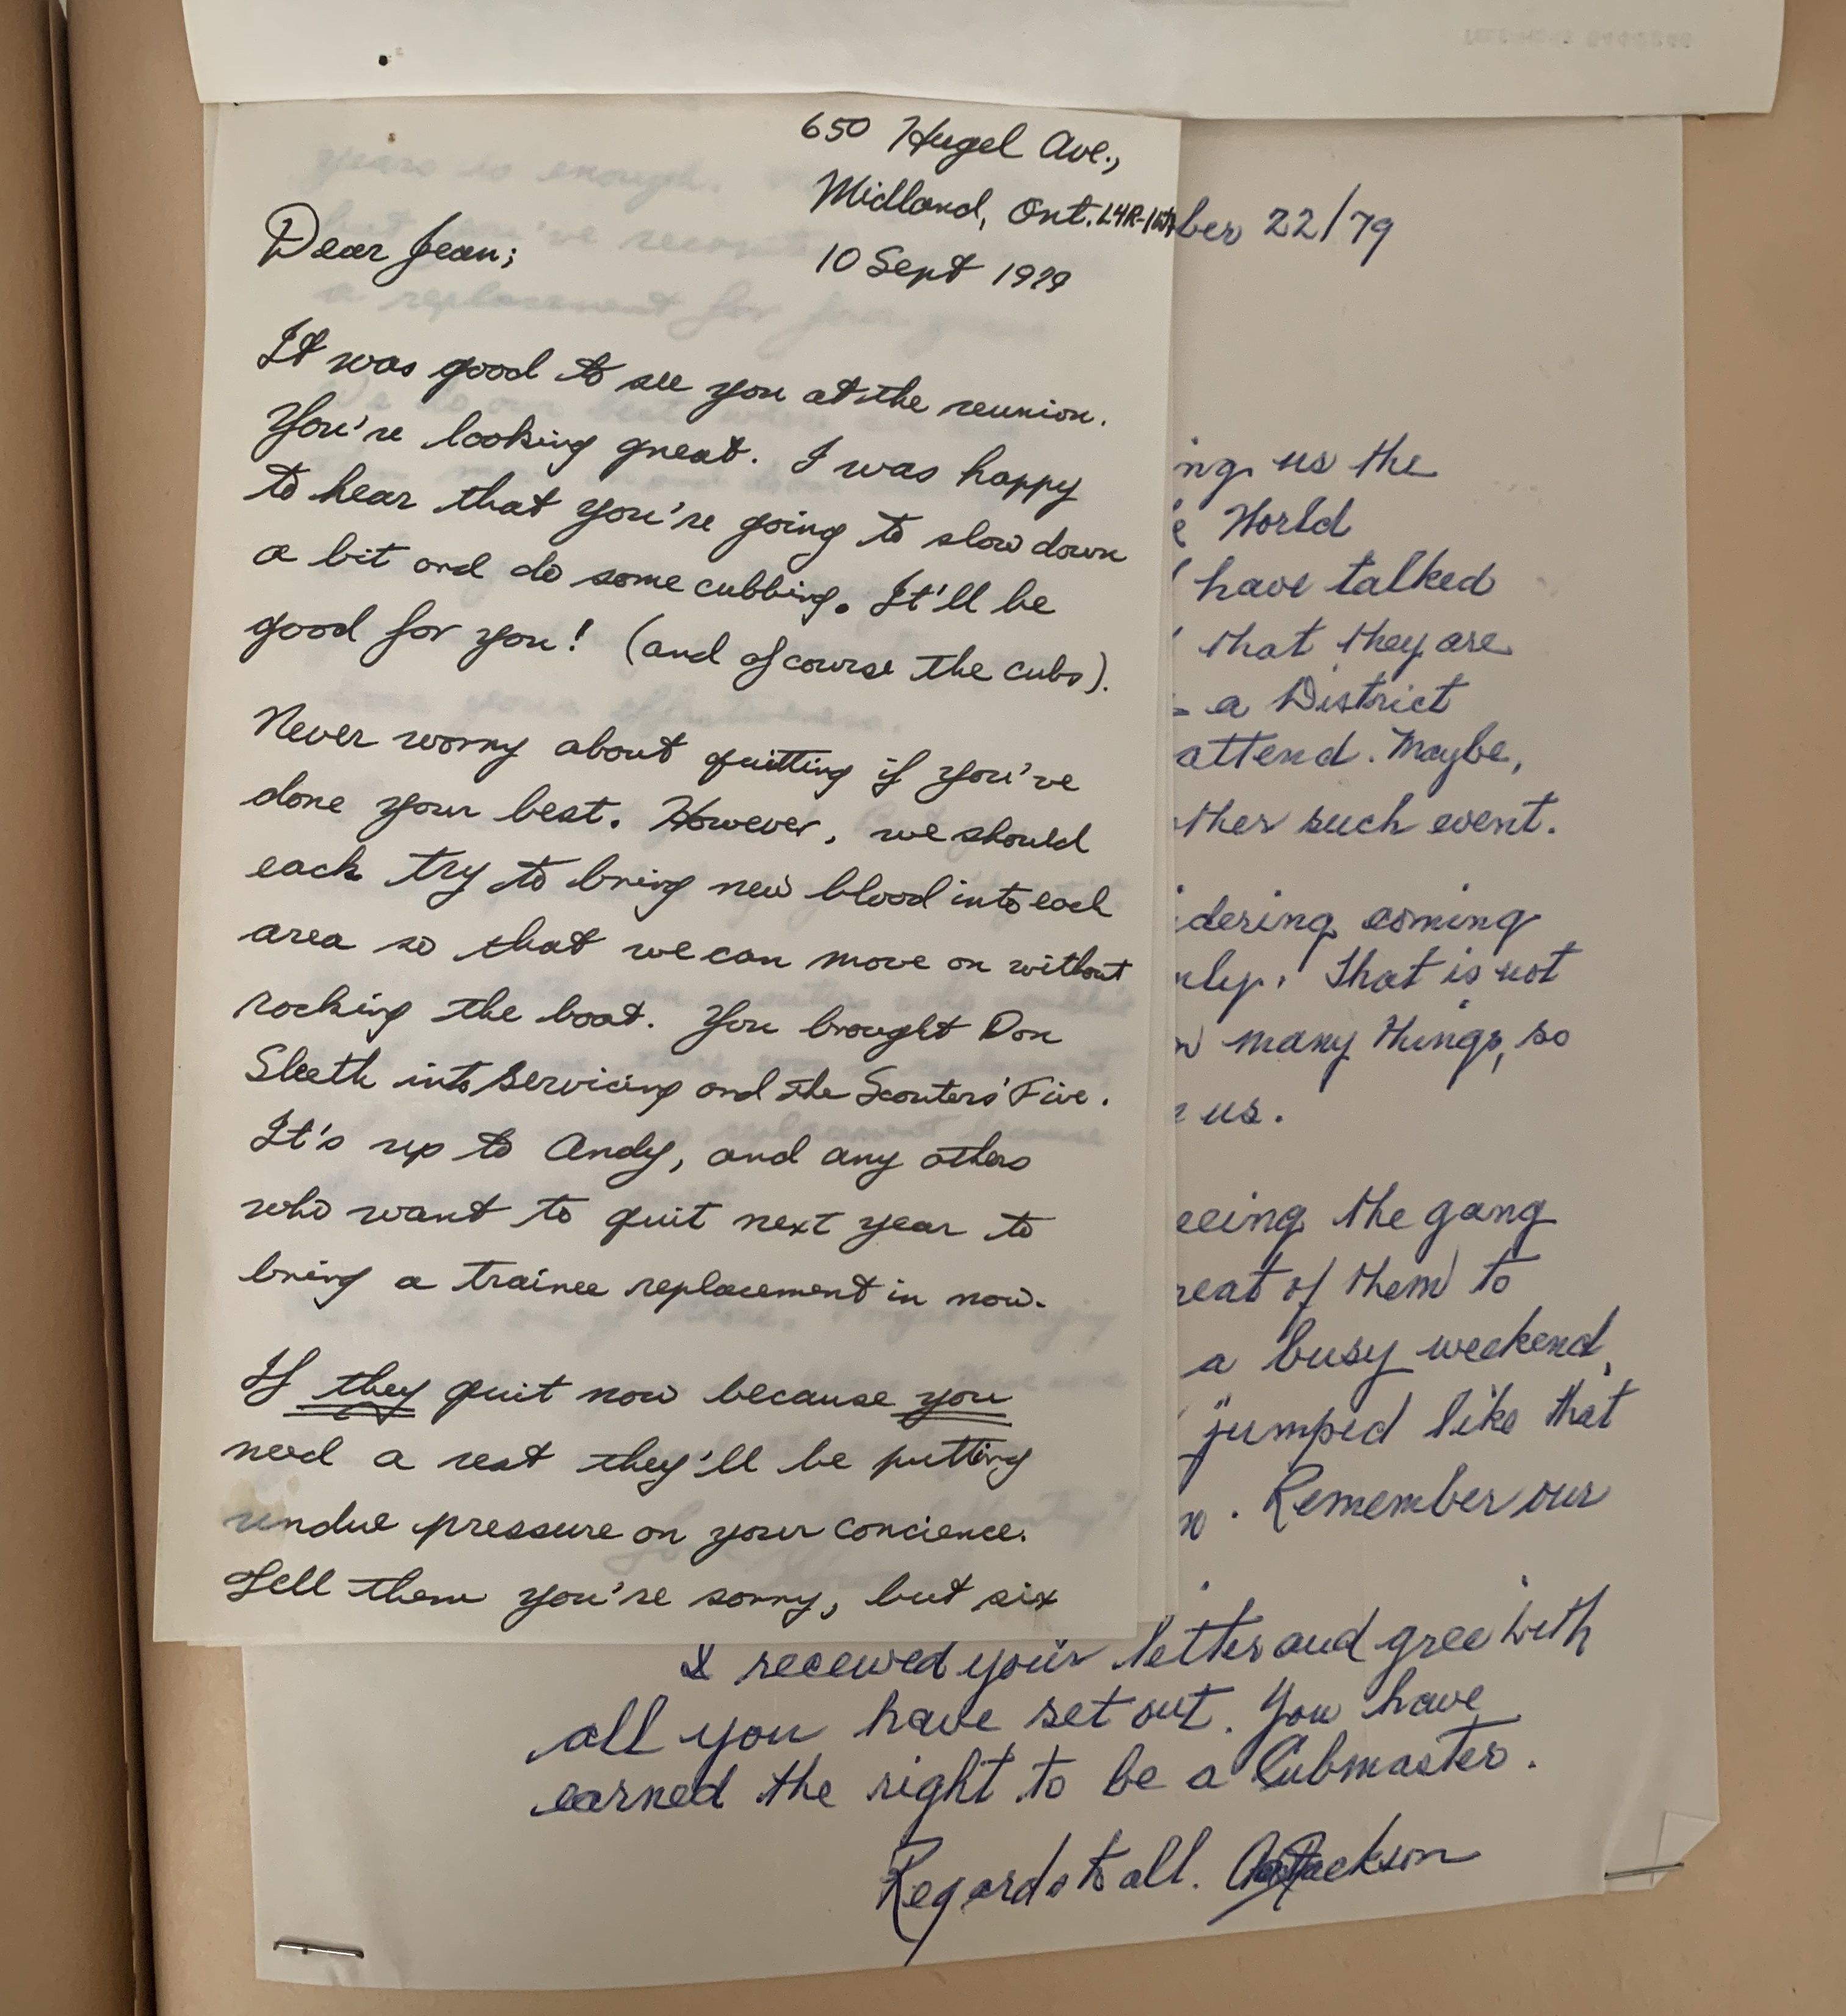 650 Hugel Ave.,
Midland, Ont. L4R-1W
10 Sept 1979
Dear Jean;
It was good to see you at the reunion.
You're looking great. I was happy
to hear that you're going to slow down
a bit and do some cubbing. It'll be
good for you! (and of course the cubs).
Never worry about quitting if you've
done your best. However, we should
each try to bring new blood into each
area so that we can move on without
rocking the boat. You brought Don
Sleeth into servicing and the Scouters' Five.
It's up to Andy, and any others
who want to quit next year to
bring a trainee replacement in now.
If they quit now because you
need a rest they'll be putting
undue pressure on your concience.
Tell them you're sorry, but six
ber 22/79
ng us the
World
have talked
that they are
a District
attend. Maybe,
ther such event.
idering coming
nly. That is not
many things, so
us.
eeing the gang
reat of them to
a busy weekend,
jumped like that
. Remember our
I received your letter and gree with
all you have set out. You have
earned the right to be a Cubmaster.
Regards to all. Jackson